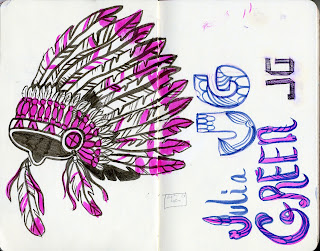 Julia JG
GREEN JG